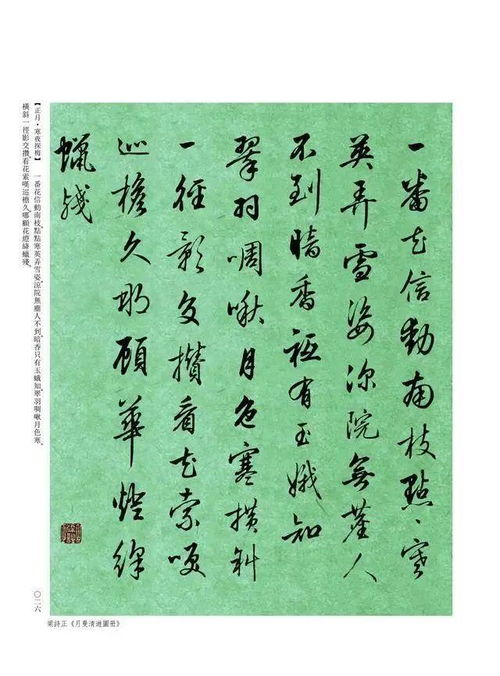 一番花信動南枝點〻寒
英弄雪姿深院無塵人
不到暗香祗有玉蛾知
翠羽啁啾月色寒橫斜
一徑影交攢看花索唉
巡檐久那顧華燈絳
蠟殘
【正月·寒夜探梅】 一番花信動南枝，點點寒英弄雪姿。涼院無塵人不到，暗香只有玉蛾知。翠羽啁啾月色寒，
橫斜一徑影交攢。看花索嘆巡檐久，哪顧花燈絳蠟殘。
〇二六
梁詩正《月曼清遊圖冊》